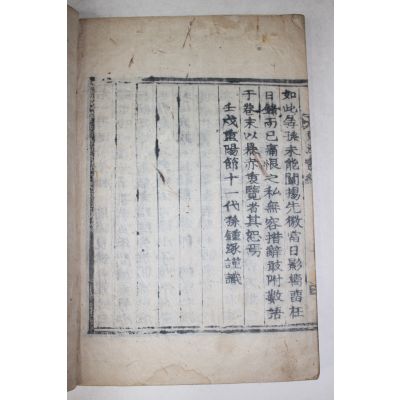 如此年孫未能闡揚先徽當日影響舊在
日錄而已痛恨之私無容措辭敢附數語
于卷末以暴亦東覽者其恕焉
壬戌重陽節十一代孫鍾 謹識